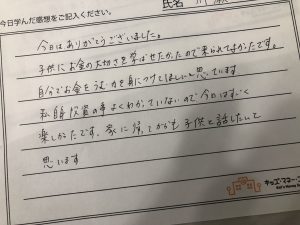 今日学んだ感想をご記入ください。
氏名
今日はありがとうございました。
子供にお金の大切さを学ばせたかたので来られてよかったです。
自分でお金をうむ力を身につけてほしいと思っています
私自身投資の事よくわかっていないので今日はすごく
楽しかったです。家に帰ってからも子供と話したいと
思います
キッズ・マネー・ス